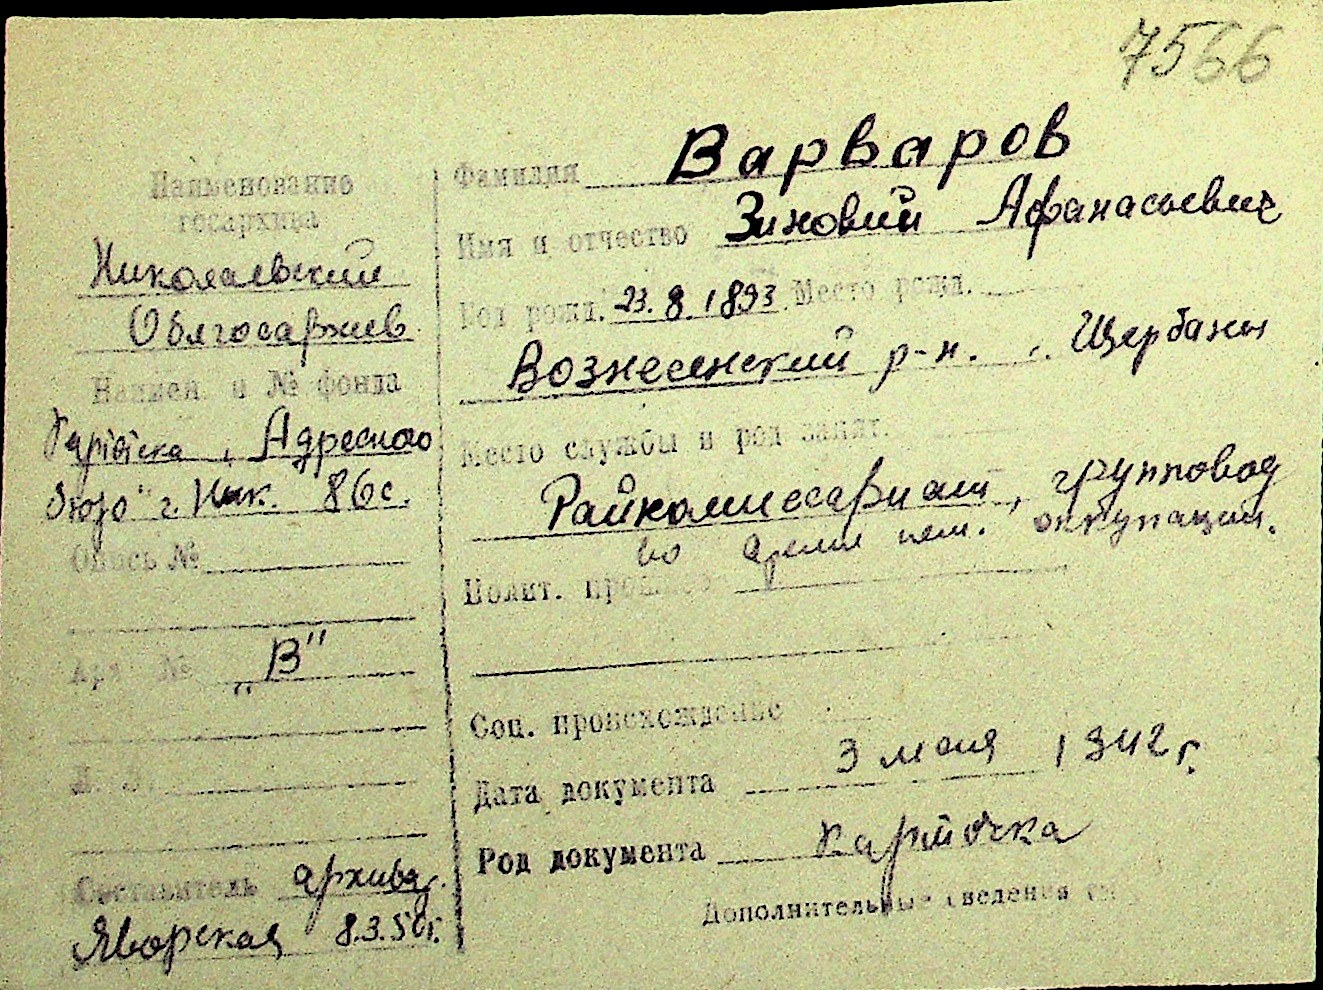 7566
Наименование
госархива
Николаевский
Облгосархив
Наимен. и № фонда
Адресного
бюро" г. Ник. 86с.
Опись №
Арх. № „В"
Л. Л.
Составитель архива
Яворская 8.3.50г.
Фамилия Варваров
Имя и отчество Зиновий Афанасьевич
Год рожд. 23.8.1893 Место рожд.
Вознесенский р-н. Щербаны
Место службы и род занят.
Райкомиссариат, групповод
во время нем. оккупации.
Полит. прошлое
Соц. происхождение
Дата документа 3 мая 1942 г.
Род документа карточка
Дополнительные сведения